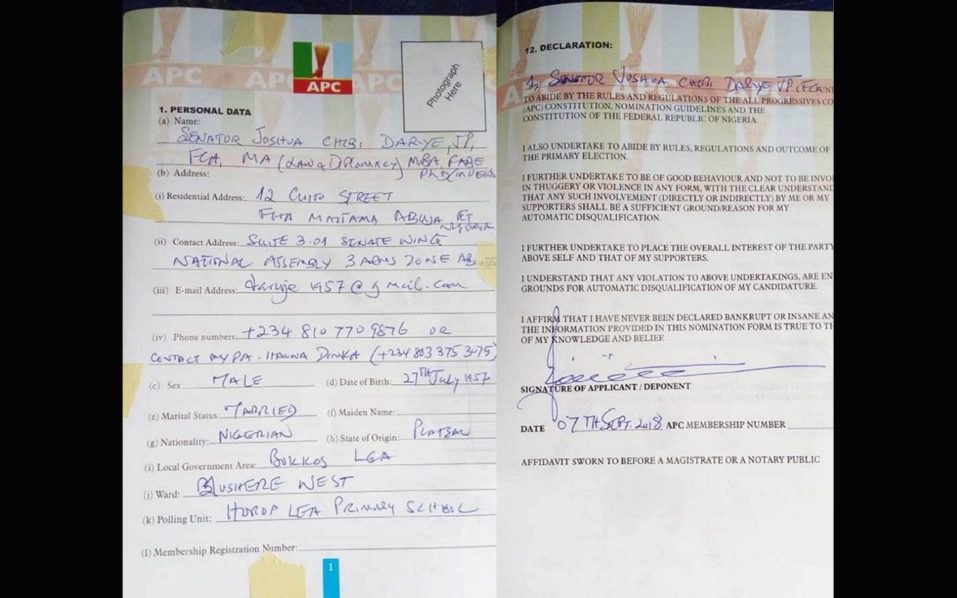 APC APC APC APC
APC
Photograph
Here
1. PERSONAL DATA
(a) Name:
SENATOR JOSHUA CHIBI DARIYE, JP,
FCA, MA (LAW & DIPLOMACY) MBA, FABE
(b) Address:
(i) Residential Address: 12 CUITO STREET
FHA MAITAMA ABUJA FCT
NIGERIA
(ii) Contact Address: SUITE 3.01 SENATE WING
NATIONAL ASSEMBLY 3 ARMS ZONE AB
(iii) E-mail Address: dariye1957@gmail.com
(iv) Phone numbers: +234 810 770 9876 OR
CONTACT MY PA - DIMKA (+234 803 375 3075)
(c) Sex MALE (d) Date of Birth: 27TH July 1957
(e) Marital Status: MARRIED (f) Maiden Name:
(g) Nationality: NIGERIAN (h) State of Origin: PLATEAU
(i) Local Government Area: BOKKOS LGA
(j) Ward: MUSHERE WEST
(k) Polling Unit: HOROP LEA PRIMARY SCHOOL
(l) Membership Registration Number:
1
12. DECLARATION:
I, SENATOR JOSHUA CHIBI DARIYE JP, (FCA
TO ABIDE BY THE RULES AND REGULATIONS OF THE ALL PROGRESSIVES CO
(APC) CONSTITUTION, NOMINATION GUIDELINES AND THE
CONSTITUTION OF THE FEDERAL REPUBLIC OF NIGERIA.
I ALSO UNDERTAKE TO ABIDE BY RULES, REGULATIONS AND OUTCOME OF
THE PRIMARY ELECTION.
I FURTHER UNDERTAKE TO BE OF GOOD BEHAVIOUR AND NOT TO BE INVO
IN THUGGERY OR VIOLENCE IN ANY FORM, WITH THE CLEAR UNDERSTAND
THAT ANY SUCH INVOLVEMENT (DIRECTLY OR INDIRECTLY) BY ME OR MY
SUPPORTERS SHALL BE A SUFFICIENT GROUND/REASON FOR MY
AUTOMATIC DISQUALIFICATION.
I FURTHER UNDERTAKE TO PLACE THE OVERALL INTEREST OF THE PARTY
ABOVE SELF AND THAT OF MY SUPPORTERS.
I UNDERSTAND THAT ANY VIOLATION TO ABOVE UNDERTAKINGS, ARE EN
GROUNDS FOR AUTOMATIC DISQUALIFICATION OF MY CANDIDATURE.
I AFFIRM THAT I HAVE NEVER BEEN DECLARED BANKRUPT OR INSANE AN
THE INFORMATION PROVIDED IN THIS NOMINATION FORM IS TRUE TO TH
OF MY KNOWLEDGE AND BELIEF.
SIGNATURE OF APPLICANT / DEPONENT
DATE 07TH SEPT. 2018 APC MEMBERSHIP NUMBER
AFFIDAVIT SWORN TO BEFORE A MAGISTRATE OR A NOTARY PUBLIC